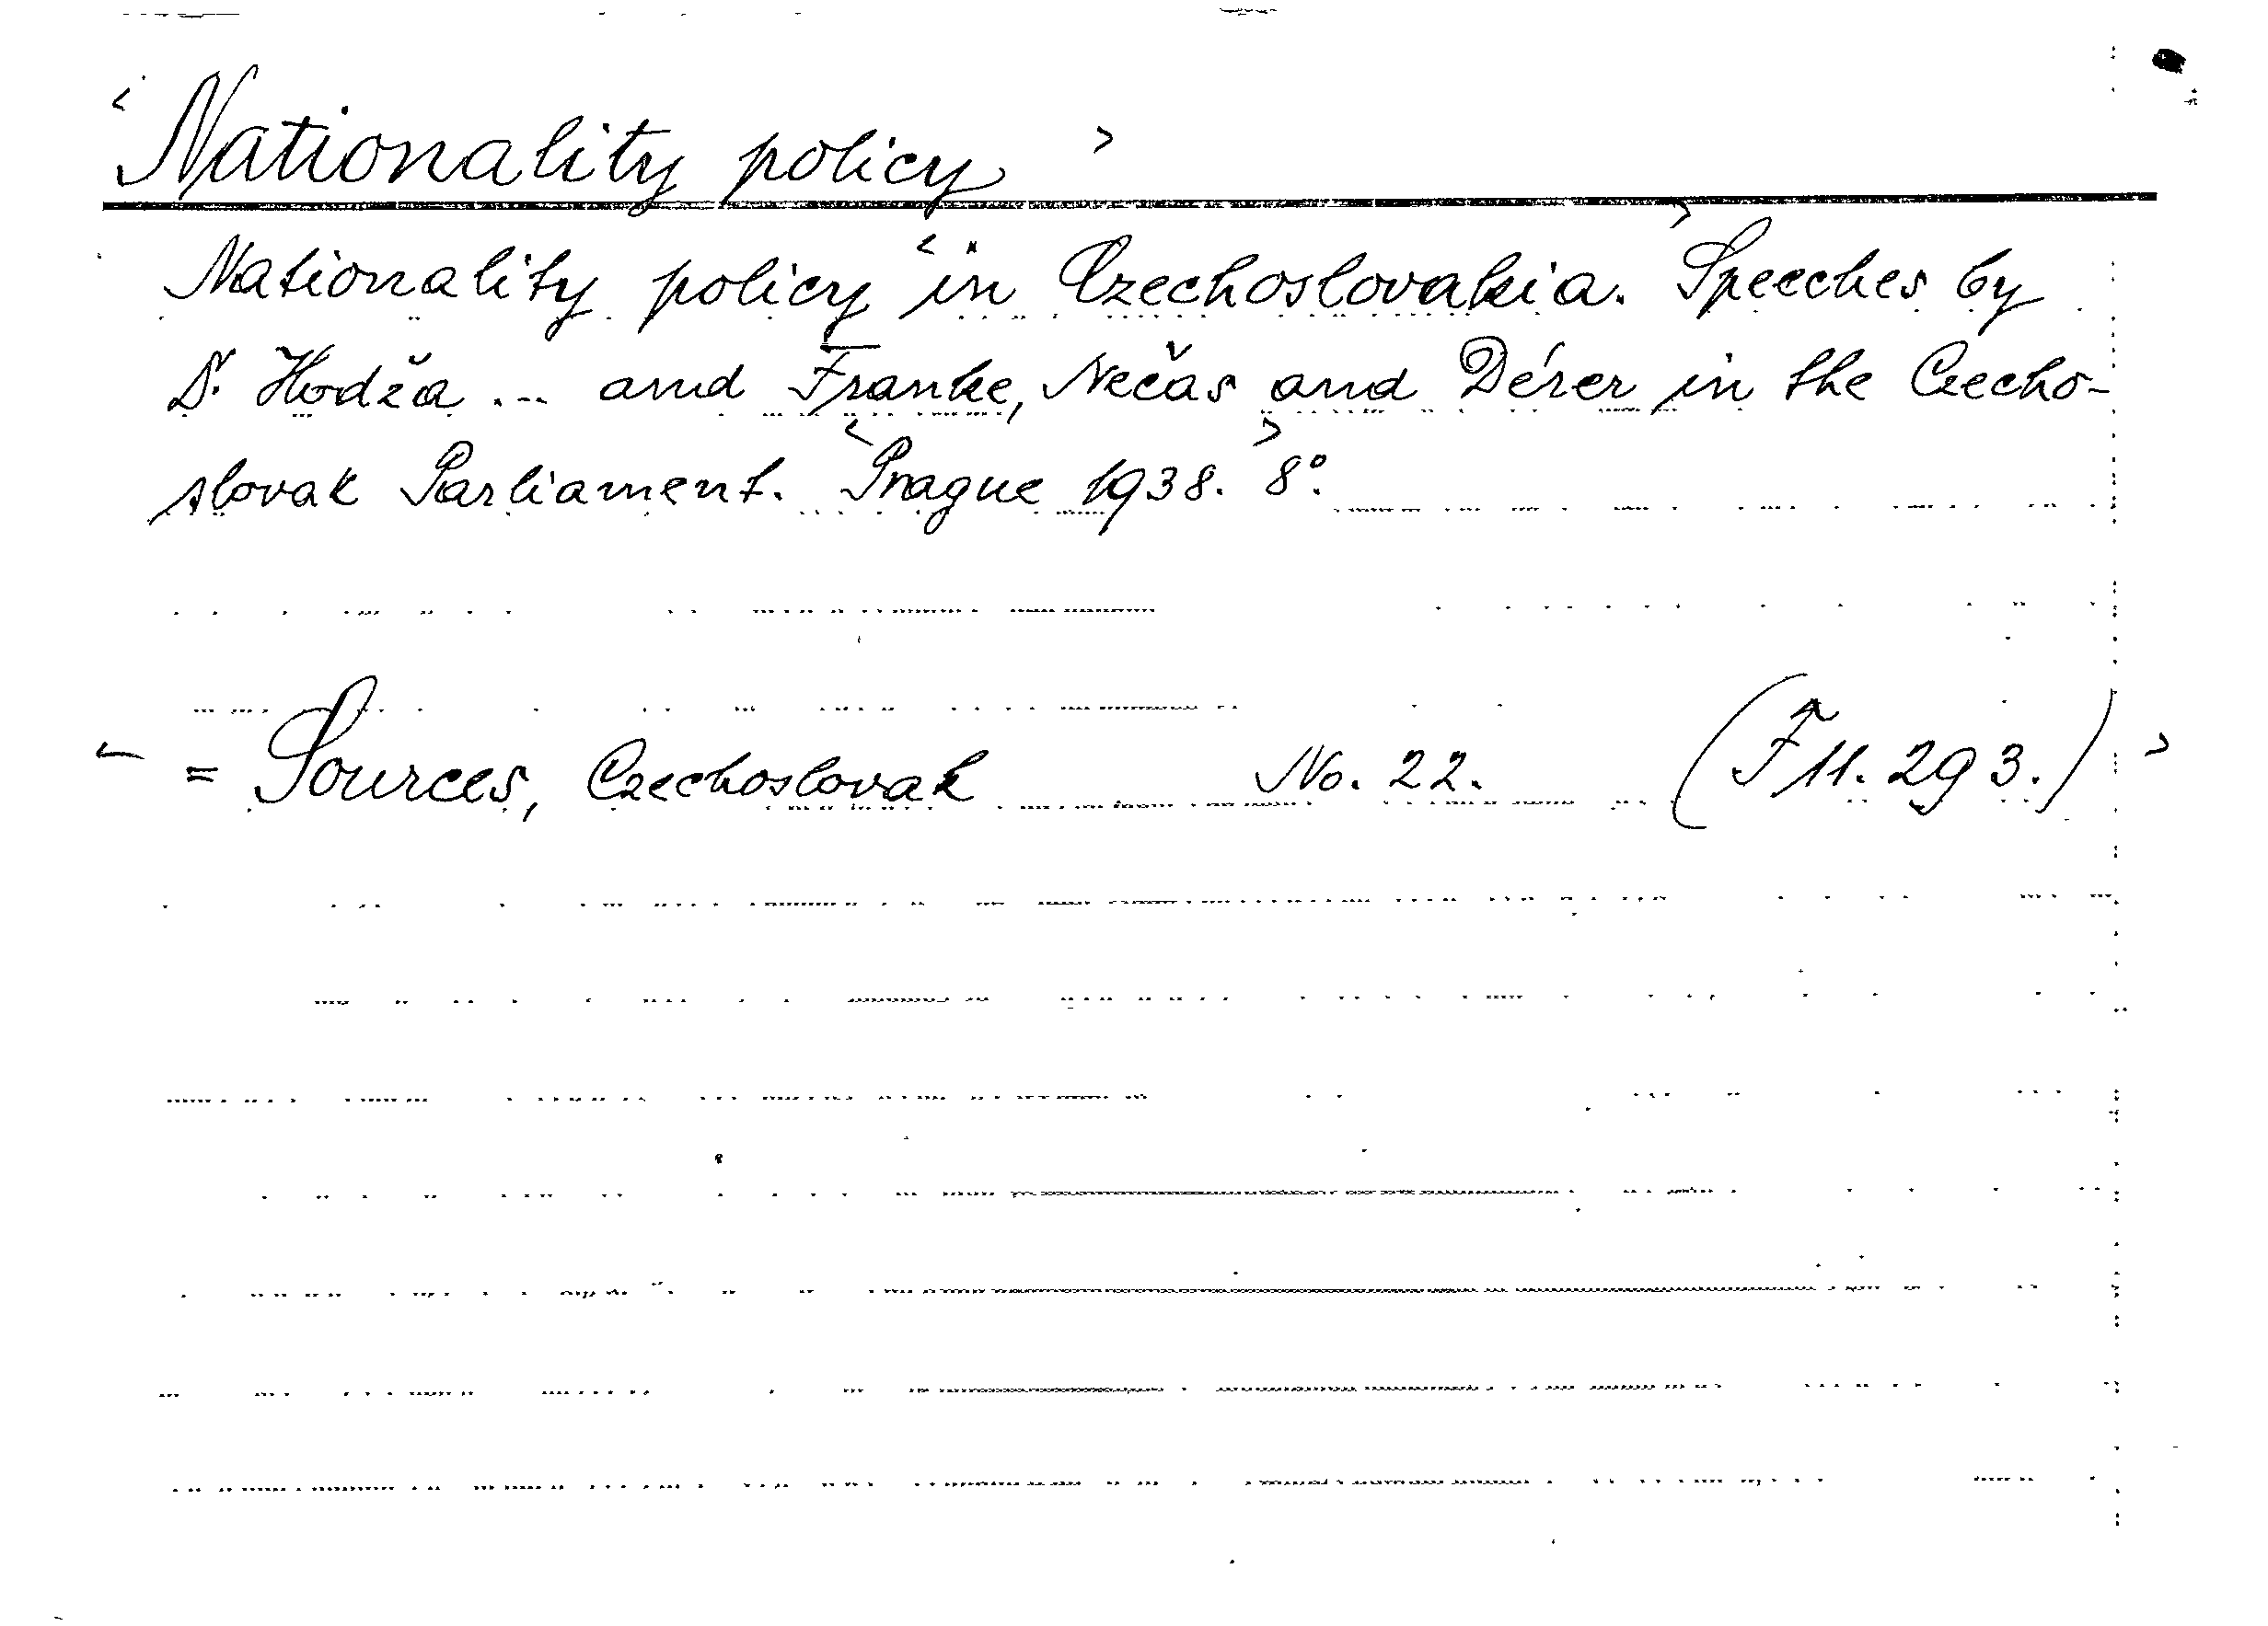 < Nationality policy >
Nationality policy < in Czechoslovakia. > Speeches by
Dr. Hodža ... and Franke, Nečas and Dérer in the Czecho-
slovak Parliament. < Prague 1938. > 8°.
< = Sources, Czechoslovak No. 22. (F 11. 293.) >